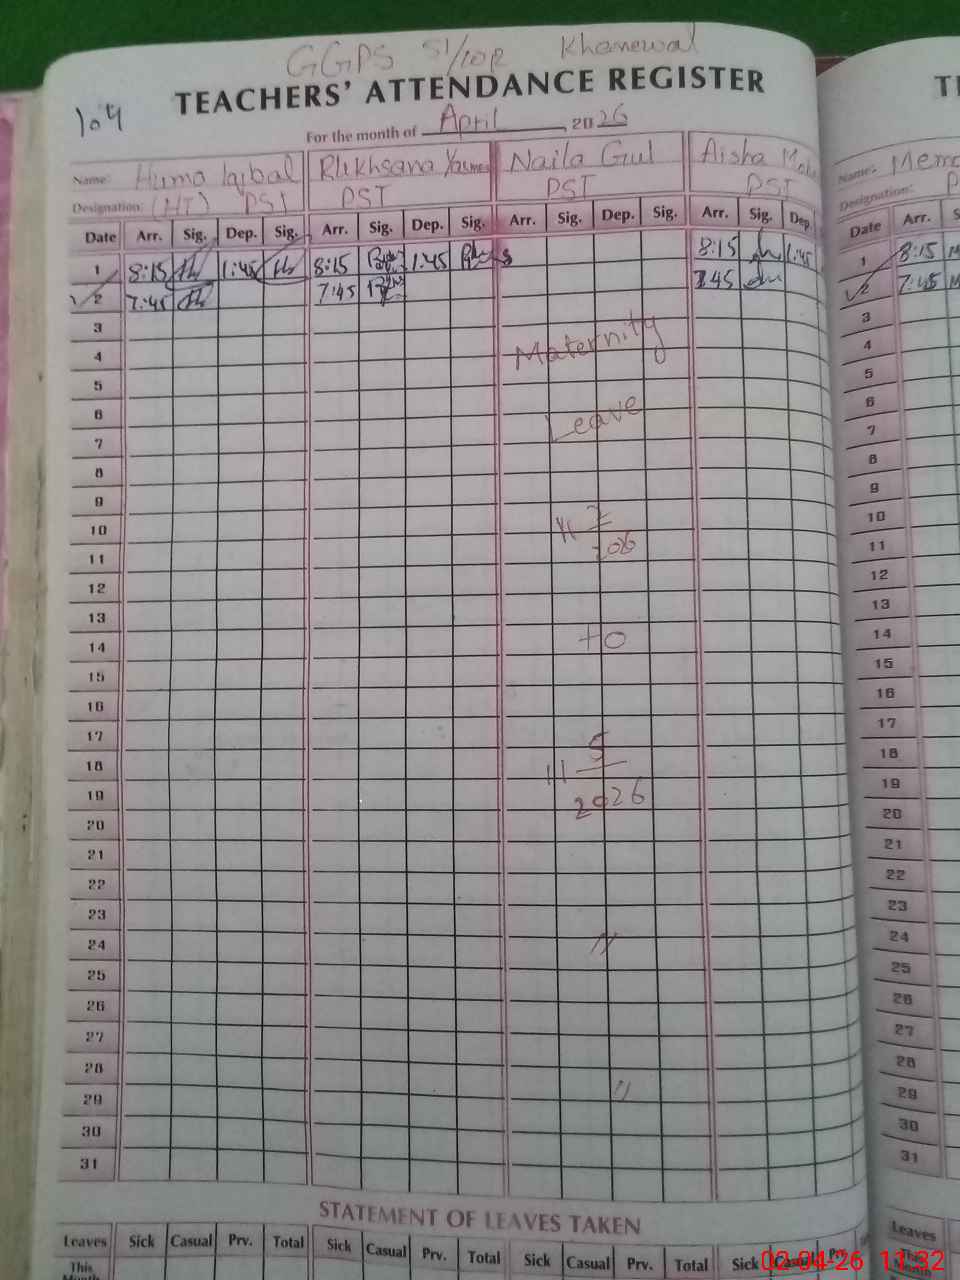 GGPS 51/10R Khanewal
TEACHERS' ATTENDANCE REGISTER
104
For the month of April 2026
Name: Huma Iqbal Rukhsana Naila Gul Aisha
Designation: (HT) PST PST PST PST
Date Arr. Sig. Dep. Sig. Arr. Sig. Dep. Sig. Arr. Sig. Dep. Sig. Arr. Sig. Dep
1 8:15 1:45 8:15 1:45 8:15 1:45
2 7:45 7:45 7:45
3
4 Maternity
5
6
7 Leave
8
9
10
11
12
13
14 to
15
16
17
18 5
19 2026
20
21
22
23
24 "
25
26
27
28
29 "
30
31
STATEMENT OF LEAVES TAKEN
Leaves Sick Casual Prv. Total Sick Casual Prv. Total Sick Casual Prv. Total Sick Casual Prv.
This
Month
Name:
Designation:
Date Arr.
1 8:15
2 7:45
3
4
5
6
7
8
9
10
11
12
13
14
15
16
17
18
19
20
21
22
23
24
25
26
27
28
29
30
31
Leaves
02-04-26 11:32